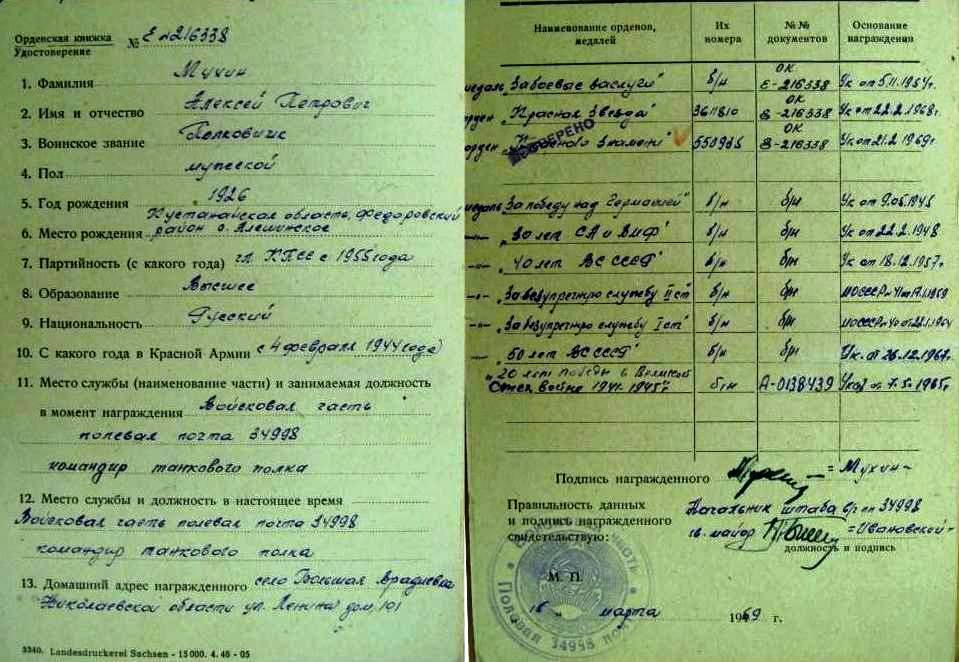 Орденская книжка
Удостоверение № Е №216338
1. Фамилия Мухин
2. Имя и отчество Алексей Петрович
3. Воинское звание Полковник
4. Пол мужской
5. Год рождения 1926
Кустанайская область, Федоровский
6. Место рождения район с. Алешинское
7. Партийность (с какого года) чл. КПСС с 1955 года
8. Образование Высшее
9. Национальность Русский
10. С какого года в Красной Армии с 4 февраля 1944 года
11. Место службы (наименование части) и занимаемая должность
в момент награждения Войсковая часть
полевая почта 34998
командир танкового полка
12. Место службы и должность в настоящее время
Войсковая часть полевая почта 34998
командир танкового полка
13. Домашний адрес награжденного село Большая Врадиевка
Николаевской области ул. Ленина дом, 101
3340. Landesdruckerei Sachsen - 15 000. 4. 48 - 05
Наименование орденов, медалей Их номера №№ документов Основание награждения
медаль "За боевые заслуги" б/н ОК Е-216338 Ук от 5.11.1954г.
орден "Красная Звезда" 3611810 ОК Е-216338 Ук от 22.2.1968г.
орден "Красного Знамени" 550935 ОК Е-216338 Ук от 21.2.1969г
ПРОВЕРЕНО
медаль "За победу над Германией" б/н б/н Ук от 9.05.1945
-"- "30 лет СА и ВМФ" б/н б/н Ук от 22.2.1948
-"- "40 лет ВС СССР" б/н б/н Ук от 18.12.1957г.
-"- "За безупречную службу II ст" б/н б/н МО СССР
-"- "За безупречную службу I ст" б/н б/н МО СССР
-"- "50 лет ВС СССР" б/н б/н Ук. от 26.12.1967г.
"20 лет победы в Великой
Отеч войне 1941-1945г" б/н А-0138439 Указ от 7.5.1965г.
Подпись награжденного =Мухин=
Правильность данных
и подпись награжденного
свидетельствую:
Начальник штаба в/ч пп 34998
гв. майор =Ивановский=
должность и подпись
М. П.
Полевая почта 34998
16 " марта 1969 г.